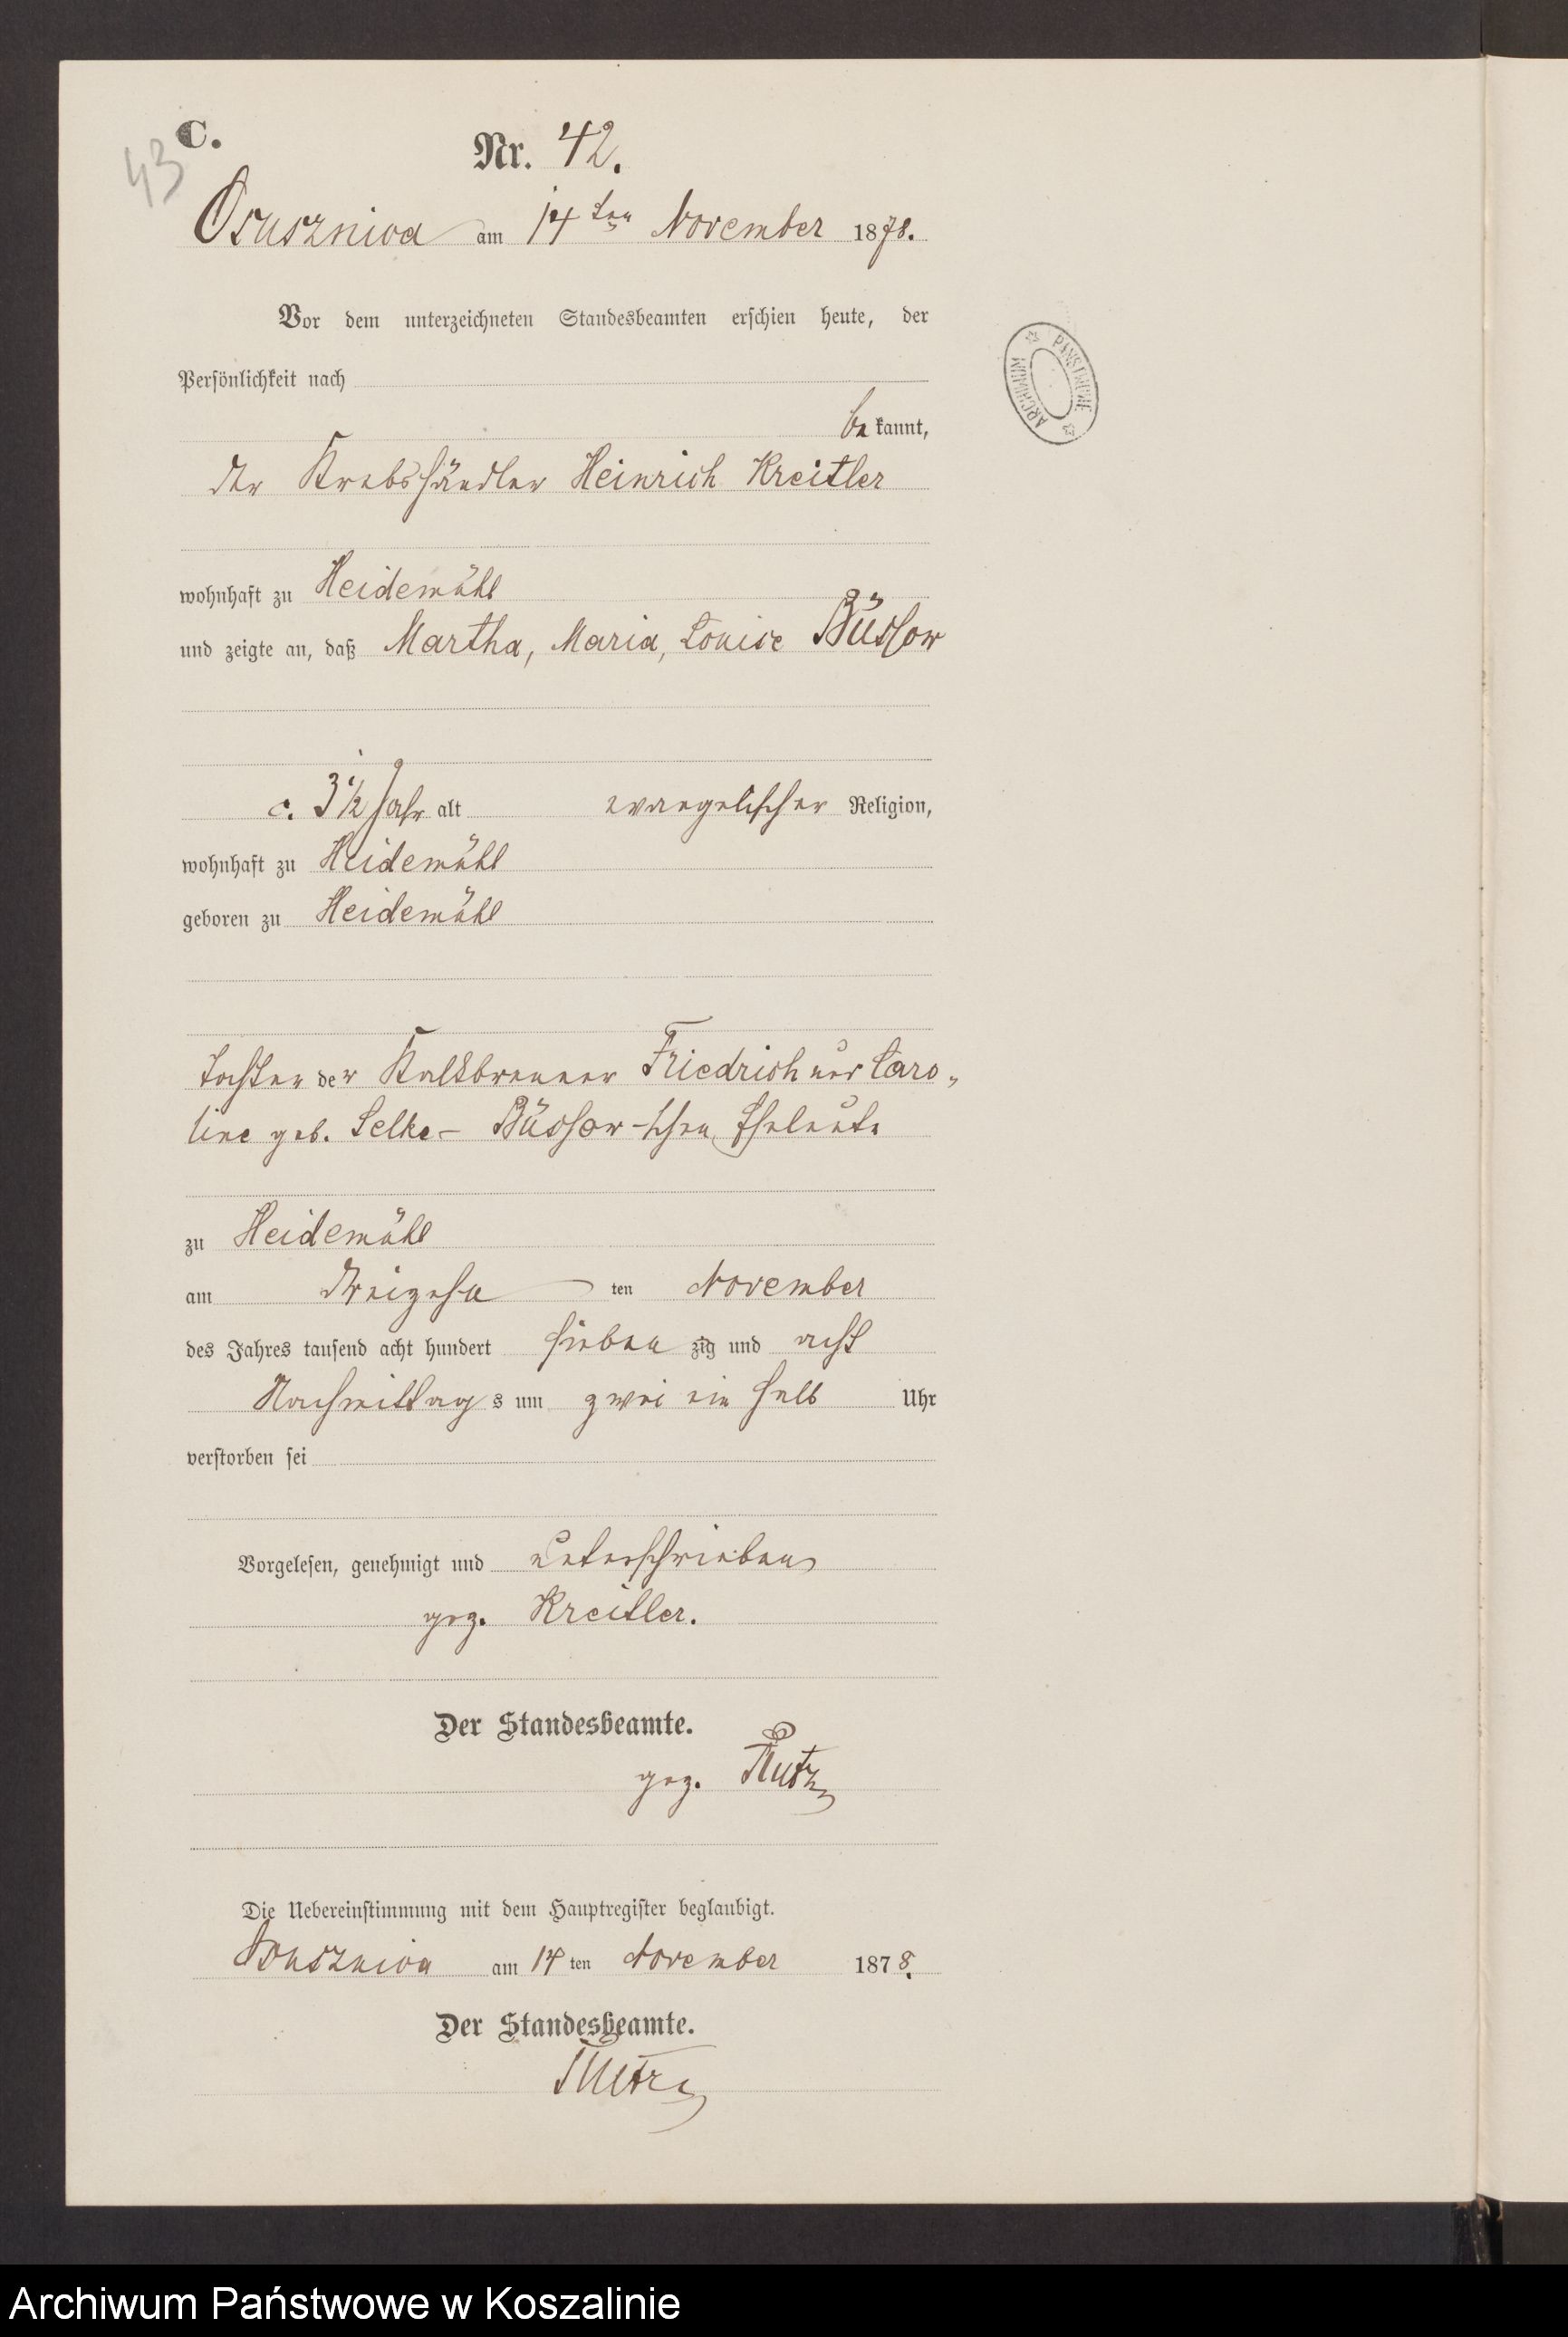 C.
43
Nr. 42.
Osusznica am 14ten November 1878.
Vor dem unterzeichneten Standesbeamten erschien heute, der
Persönlichkeit nach
bekannt,
der Krebshändler Heinrich Kreitler
wohnhaft zu Heidemühl
und zeigte an, daß Martha, Maria, Louise Büssow
c. 3 1/2 Jahr alt evangelischer Religion,
wohnhaft zu Heidemühl
geboren zu Heidemühl
Tochter der Kalkbrenner Friedrich und Caro-
line geb. Selke - Büssow-schen Eheleute
zu Heidemühl
am Dreizehn ten November
des Jahres tausend acht hundert sieben zig und acht
Nachmittags um zwei ein halb Uhr
verstorben sei
Vorgelesen, genehmigt und unterschrieben
gez. Kreitler.
Der Standesbeamte.
gez.
Die Uebereinstimmung mit dem Hauptregister beglaubigt.
Osusznica am 14ten November 1878.
Der Standesbeamte.
ARCHIWUM PAŃSTWOWE
Archiwum Państwowe w Koszalinie